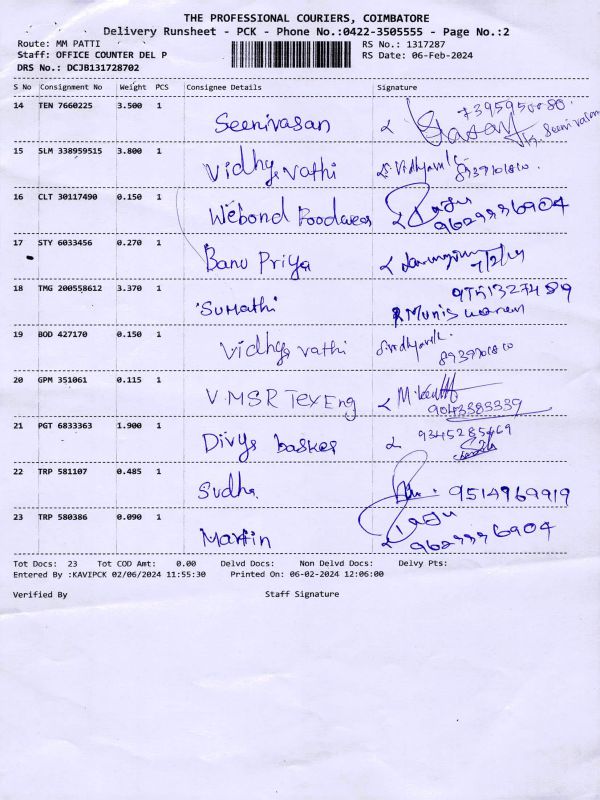 THE PROFESSIONAL COURIERS, COIMBATORE
Delivery Runsheet - PCK - Phone No.:0422-3505555 - Page No.:2
Route: MM PATTI
RS No.: 1317287
Staff: OFFICE COUNTER DEL P
RS Date: 06-Feb-2024
DRS No.: DCJB131728702
S No Consignment No Weight PCS Consignee Details Signature
14 TEN 7660225 3.500 1
Seenivasan
Seenivasan
15 SLM 338959515 3.800 1
Vidhya vathi
8939701810
16 CLT 30117490 0.150 1
Webond
Raju
17 STY 6033456 0.270 1
Banu Priya
7/2/24
18 TMG 200558612 3.370 1
"Sumathi"
9751327489
19 BOD 427170 0.150 1
Vidhya vathi
8939701810
20 GPM 351061 0.115 1
V.MSR Tex Eng
9043383339
21 PGT 6833363 1.900 1
Divya baskar
9345285469
22 TRP 581107 0.485 1
Sudha
9514969919
23 TRP 580386 0.090 1
Martin
Raju
Tot Docs: 23 Tot COD Amt: 0.00 Delvd Docs: Non Delvd Docs: Delvy Pts:
Entered By :KAVIPCK 02/06/2024 11:55:30 Printed On: 06-02-2024 12:06:00
Verified By Staff Signature